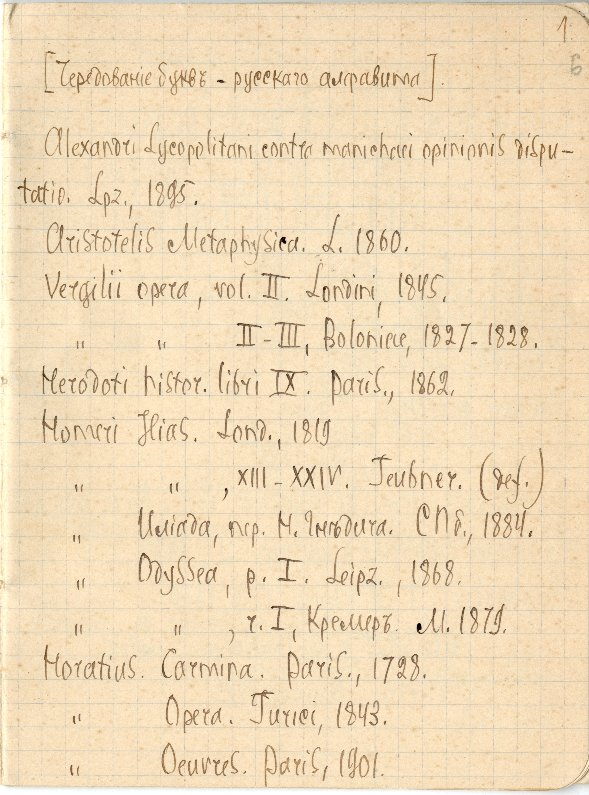 1
6
[Чередованіе буквъ - русскаго алфавита].
Alexandri Lycopolitani contra manichaei opinionis dispu-
tatio. Lpz., 1895.
Aristotelis Metaphysica. L. 1860.
Vergilii opera, vol. II. Londini, 1845.
„ „ II-III, Boloniae, 1827-1828.
Herodoti histor. libri IX. Paris., 1862.
Homeri Ilias. Lond., 1819
„ „ , XIII-XXIV. Teubner. (def.)
„ Илiада, пер. Н. Гнѣдича. СПб., 1884.
„ Odyssea, p. I. Leipz., 1868.
„ „ , т. I, Кремеръ. М. 1879.
Horatius. Carmina. Paris., 1728.
„ Opera. Turici, 1843.
„ Oeuvres. Paris, 1901.